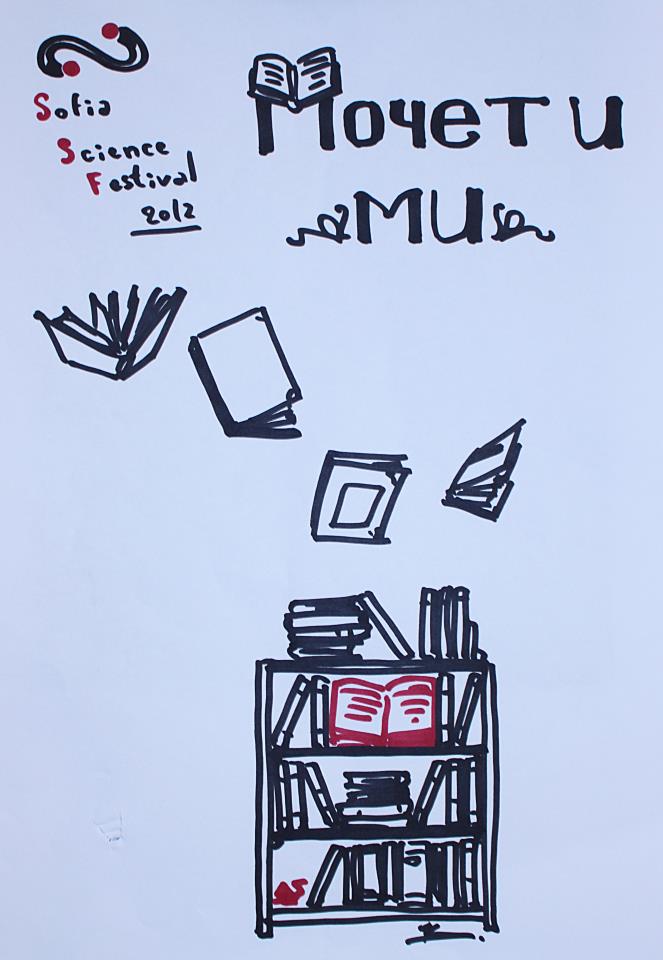 Sofia
Science
Festival
2012
Мочети
ми